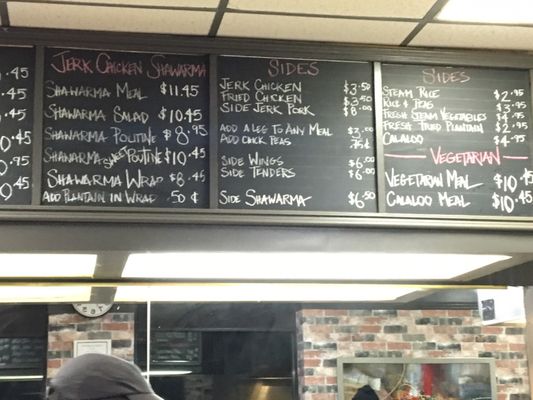 .45
.95
0.45
9.95
10.45
9.45
JERK CHICKEN SHAWARMA
SHAWARMA MEAL $11.45
SHAWARMA SALAD $10.45
SHAWARMA POUTINE $8.95
SHAWARMA POUTINE $10.45
SHAWARMA WRAP $8.45
ADD PLANTAIN IN WRAP .50 ¢
SIDES
JERK CHICKEN $3.50
FRIED CHICKEN $3.50
SIDE JERK PORK $8.00
ADD A LEG TO ANY MEAL $3.00
ADD CHICK PEAS .75¢
SIDE WINGS $6.00
SIDE TENDERS $6.00
SIDE SHAWARMA $6.50
SIDES
STEAM RICE $2.95
RICE & PEAS $3.95
FRESH STEAM VEGETABLES $4.95
FRESH FRIED PLANTAIN $2.95
CALALOO $4.95
VEGETARIAN
VEGETARIAN MEAL $10.45
CALALOO MEAL $10.45